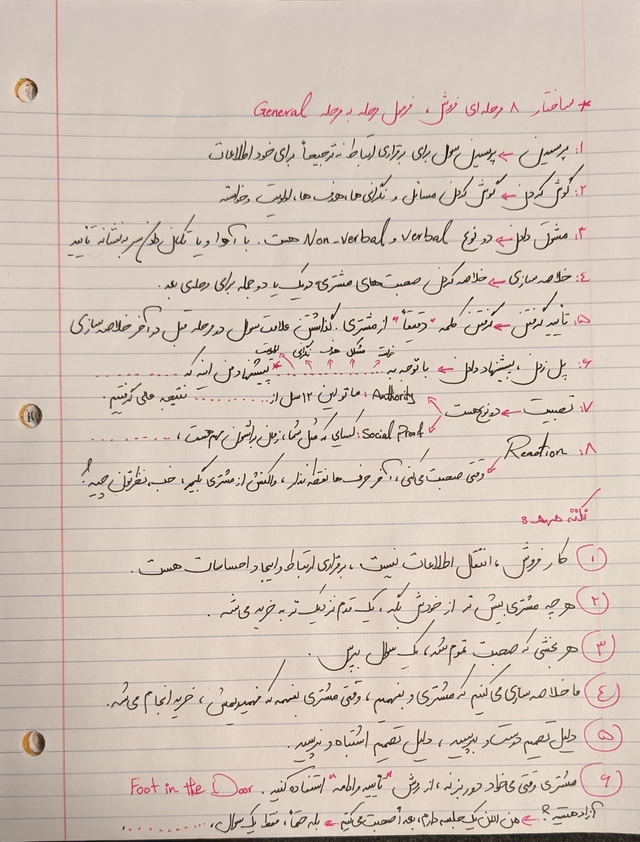 * ساختار ۸ مرحله‌ای فروش، فرمول مرحله به مرحله General
۱: پرسیدن ← پرسیدن سوال برای برقراری ارتباط نه ترجیحاً برای خود اطلاعات
۲: گوش کردن ← گوش کردن مسائل و نگرانی‌ها، هدف ها، اولویت و خواسته
۳: مشوق دادن ← دو نوع Verbal و Non-Verbal هست. با آوا و یا تکان دادن سر به نشانه تأیید
٤: خلاصه سازی ← خلاصه کردن صحبت‌های مشتری در یک یا دو جمله برای مرحله‌ی بعد.
۵: تأیید گرفتن ← گرفتن کلمه "دقیقاً" از مشتری. گذاشتن علامت سوال در مرحله قبل در آخر خلاصه سازی
خواسته مشکل هدف نگرانی اولویت
۶: پل زدن، پیشنهاد دادن ← با توجه به .......... پیشنهاد من اینه که ..........
۷: تثبیت ← دو نوع هست Authority: ما تو این ۱۲ سال از .......... نتیجه عالی گرفتیم.
Social Proof: کسایی که مثل شما، زمان براشون مهم هست، ..........
۸: Reaction
وقتی صحبت می‌کنی، آخر حرف ها نقطه نذار، واکنش از مشتری بگیر، خب، نظرتون چیه؟
نکته مهم:
۱ کار فروش، انتقال اطلاعات نیست، برقراری ارتباط و ایجاد احساسات هست.
۲ هر چه مشتری بیش تر از خودش بگه، یک قدم نزدیک تر به خرید می‌شه.
۳ هر بخشی که صحبت تموم شد، یک سوال بپرس.
٤ ما خلاصه سازی می‌کنیم که مشتری رو بفهمیم، وقتی مشتری بفهمه که فهمیدیمش، خرید انجام می‌شه.
۵ دلیل تصمیم درست رو بپرسید، دلیل تصمیم اشتباه رو نپرسید.
۶ مشتری وقتی می‌خواد دور بزنه، از روش "تأیید و ادامه" استفاده کنید. Foot in the Door
آزاد هستید؟ ← من الان یک جلسه دارم، بعداً صحبت می‌کنیم ← بله حتماً، فقط یک سوال، ..........